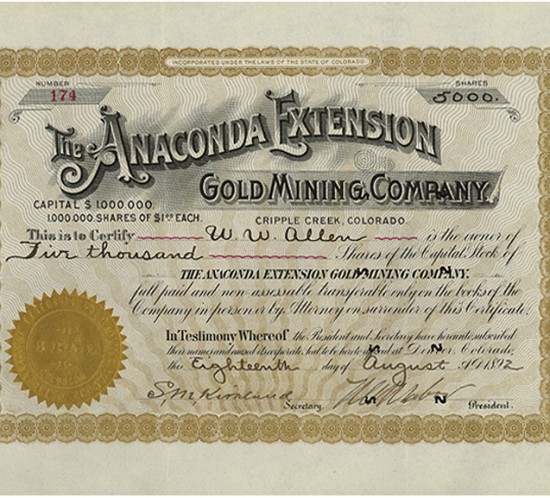 INCORPORATED UNDER THE LAWS OF THE STATE OF COLORADO.
NUMBER
174
SHARES
5000.
The ANACONDA EXTENSION
GOLD MINING COMPANY.
CAPITAL $1,000,000.
1,000,000. SHARES OF $1.00 EACH.
CRIPPLE CREEK, COLORADO.
This is to Certify W. W. Allen is the owner of
Five thousand Shares of the Capital Stock of
THE ANACONDA EXTENSION GOLD MINING COMPANY.
full paid and non-assessable transferable only on the books of the
Company in person or by Attorney on surrender of this Certificate.
In Testimony Whereof the President and Secretary have hereunto subscribed
their names and caused its corporate Seal to be hereto affixed at Denver, Colorado,
this Eighteenth day of August 1892
Secretary. President.